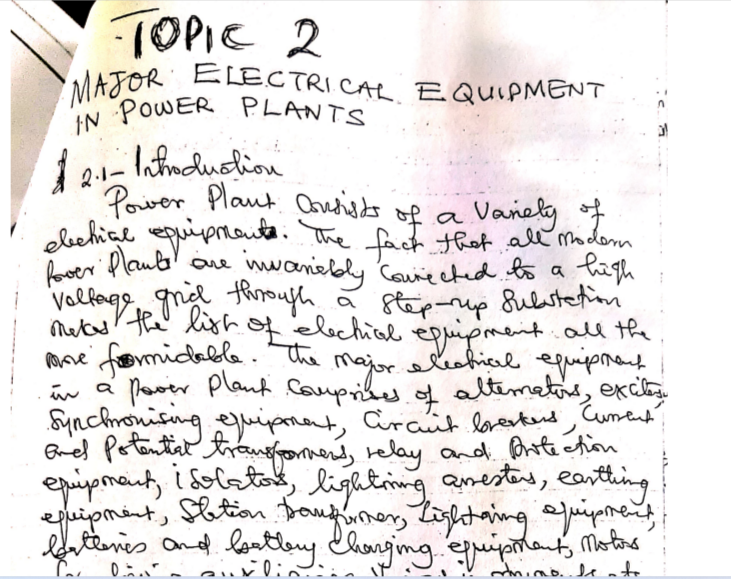 TOPIC 2
MAJOR ELECTRICAL EQUIPMENT
IN POWER PLANTS
2.1- Introduction
Power Plant Consists of a Variety of
electrical equipments. The fact that all modern
Power Plants are invariably connected to a high
Voltage grid through a Step-up Substation
makes the list of electrical equipment all the
more formidable. The major electrical equipment
in a power plant comprises of alternators, exciters,
Synchronising equipment, Circuit breakers, Current
and Potential transformers, relay and Protection
equipment, isolators, lightning arresters, earthing
equipment, Station transformer, Lightning equipment,
batteries and battery charging equipment, Motors